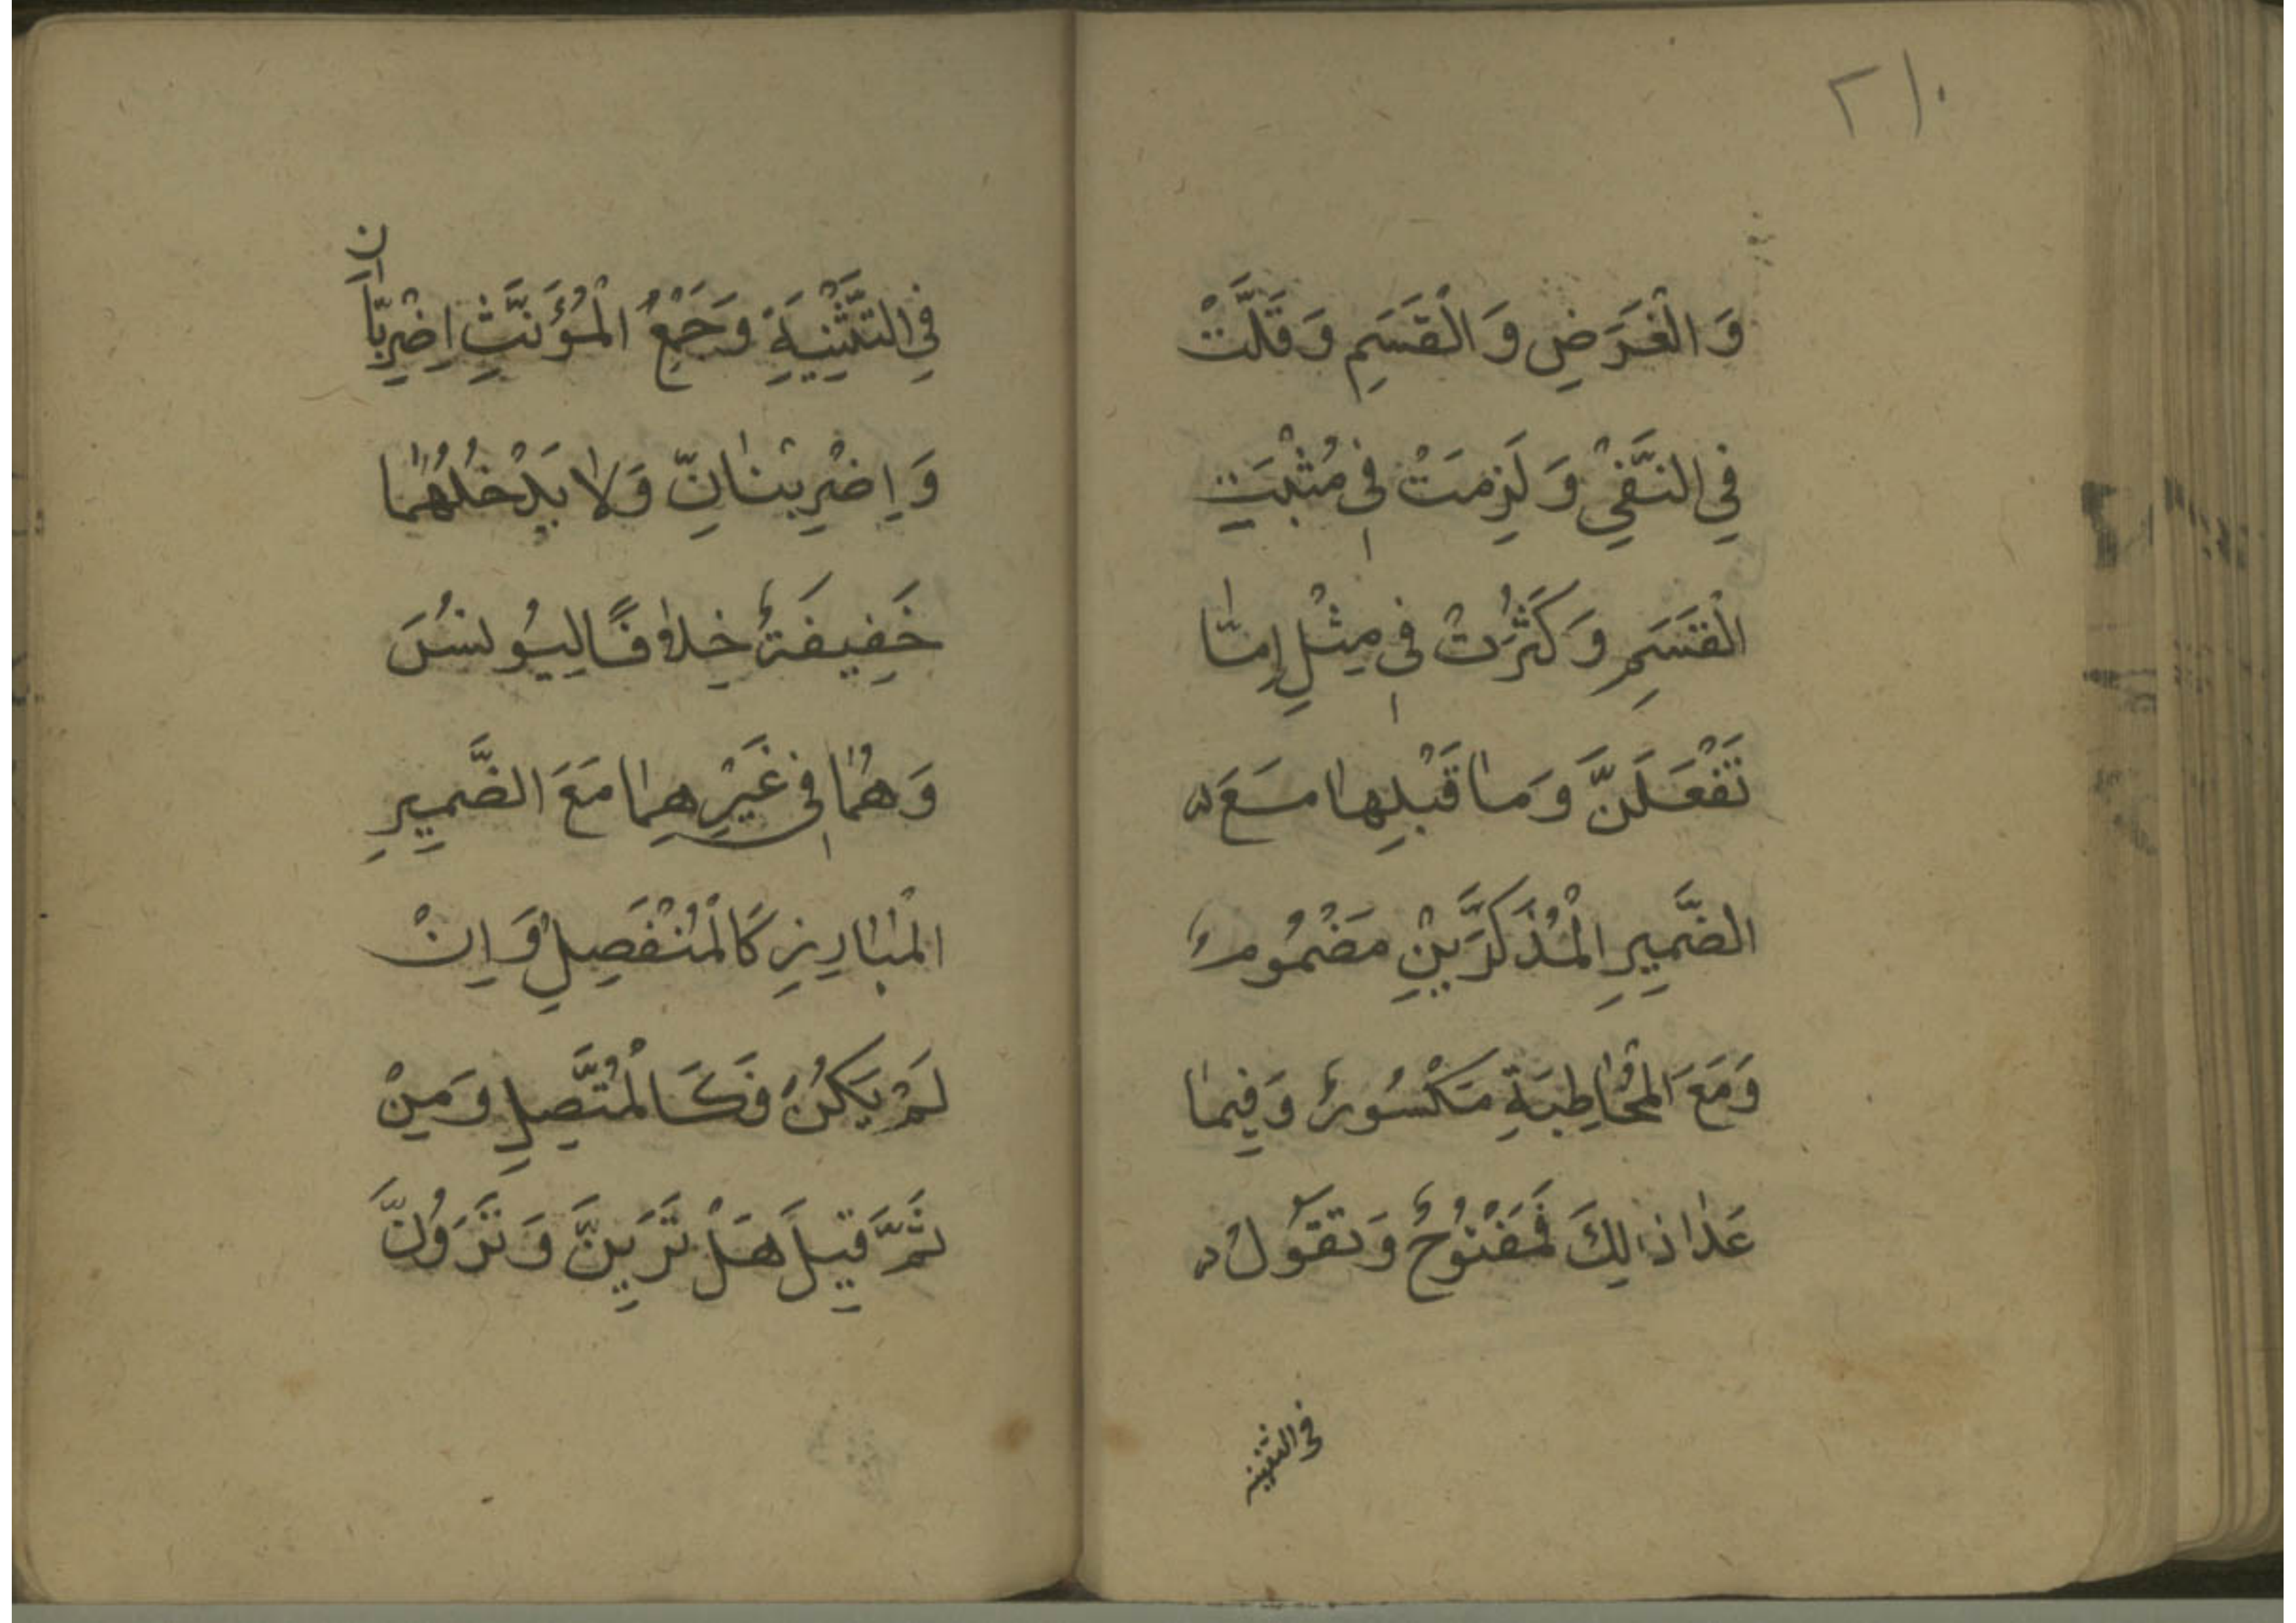 ٢١٠
وَالْغَرَضِ وَالْقَسَمِ وَقَلَّتْ
فِي النَّفْيِ وَلَزِمَتْ فِي مُثْبَتِ
الْقَسَمِ وَكَثُرَتْ فِي مِثْلِ إِمَّا
تَفْعَلَنَّ وَمَا قَبْلِهَا مَعَ
الضَّمِيرِ الْمُذَكَّرَيْنِ مَضْمُومٌ
وَمَعَ الْمُخَاطِبَةِ مَكْسُورٌ وَفِيمَا
عَدَا ذَالِكَ فَمَفْتُوحٌ وَتَقُولُ
في التثنية
فِي التَّثْنِيَةِ وَجَمْعُ الْمُؤَنَّثِ اِضْرِبَانَّ
وَاِضْرِبْنَانِّ وَلَا يَدْخُلُهُمَا
خَفِيفَةٌ خِلَافًا لِيُونُسَ
وَهُمَا فِي غَيْرِهِمَا مَعَ الضَّمِيرِ
الْبَارِزِ كَالْمُنْفَصِلِ وَاِنْ
لَمْ يَكُنْ فَكَالْمُتَّصِلِ وَمِنْ
ثَمَّ قِيلَ هَلْ تَرَيِنَّ وَتَرَوُنَّ